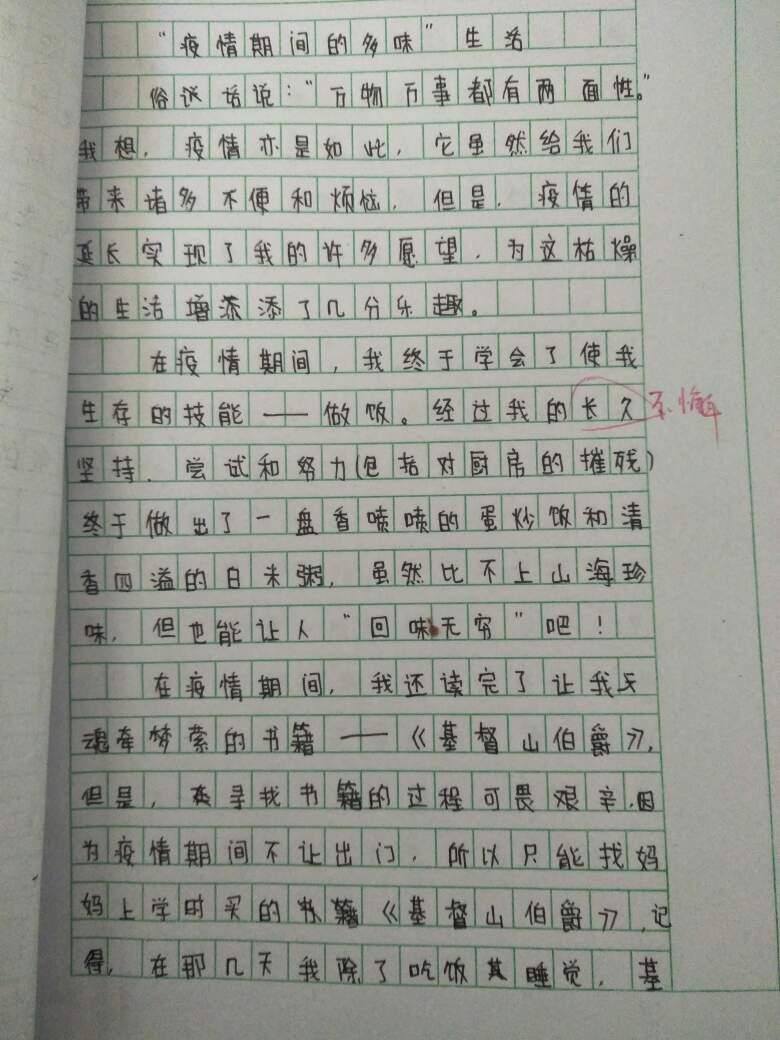 “疫情期间的多味”生活
俗议话说：“万物万事都有两面性。”
我想，疫情亦是如此，它虽然给我们
带来诸多不便和烦恼，但是，疫情的
延长实现了我的许多愿望，为这枯燥
的生活增添添了几分乐趣。
在疫情期间，我终于学会了使我
生存的技能——做饭。经过我的长久
不懈
坚持、尝试和努力(包括对厨房的摧残)
终于做出了一盘香喷喷的蛋炒饭和清
香四溢的白米粥，虽然比不上山海珍
味，但也能让人“回味无穷”吧！
在疫情期间，我还读完了让我
魂牵梦萦的书籍——《基督山伯爵》，
但是，在寻找书籍的过程可畏艰辛，因
为疫情期间不让出门，所以只能找妈
妈上学时买的书籍《基督山伯爵》，记
得，在那几天我除了吃饭其睡觉，基